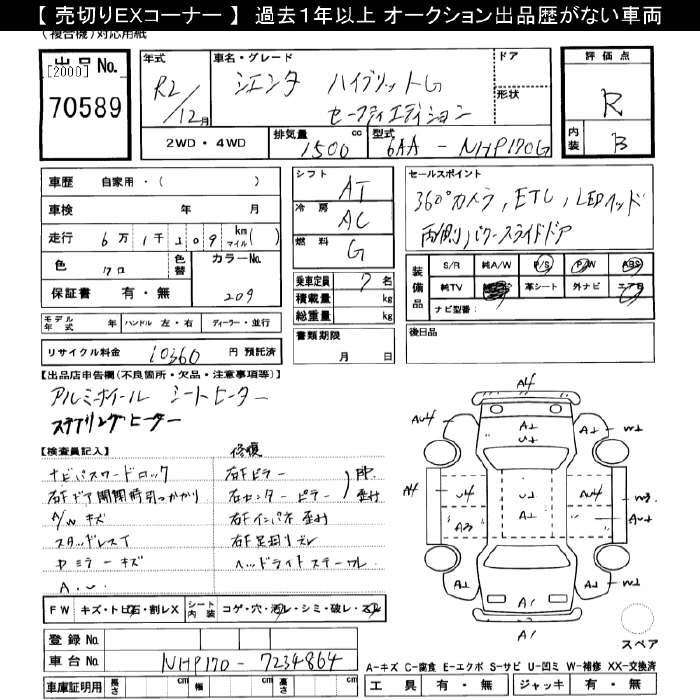 【 売切りEXコーナー 】 過去1年以上 オークション出品歴がない車両
(複合機)対応用紙
出品No.
[2000]
70589
年式
R2/12月
車名・グレード
シエンタ ハイブリットG
セーフティエディション
ドア
形状
評価点
R
内装
B
2WD・4WD
排気量
1500
cc
型式
6AA - NHP170G
車歴 自家用・( )
車検 年 月
走行 6万1千109 km マイル( )
色 クロ
色替
カラーNo.
209
保証書 有・無
シフト AT
冷房 AC
燃料 G
乗車定員 7 名
積載量 kg
総重量 kg
書類期限
月 日
セールスポイント
360°カメラ, ETC, LEDヘッド
両側パワースライドドア
装備品
S/R 純A/W P/S P/W ABS
純TV 革シート 外ナビ エアB
ナビ型番:
後日品
モデル年式 年 ハンドル 左・右 ディーラー・並行
リサイクル料金 10360 円 預託済
【出品店申告欄(不良箇所・欠品・注意事項等)】
アルミホイール シートヒーター
ステアリングヒーター
【検査員記入】
修復
ナビパスワードロック
右Fピラー
右Fドア開閉時引っかかり
右センターピラー
歪み
A/W キズ
右Fインパネ 歪み
スタッドレスT
右F足廻りズレ
ヘッドライトステー
ドミラーキズ
A.U
FW キズ・トビ石・割レX
シート内装 コゲ・穴・汚レ・シミ・破レ・スレ
登録No.
車台No. NHP170 - 7234864
車庫証明用 長さ cm 幅 cm 高さ cm
A4
AU4
A1
U1
A1
W1
A4
U4
U1
AU4
W3
A3
A1
A1
AU1
A1
A1
A1
スペア
A-キズ C-腐食 E-エクボ S-サビ U-凹ミ W-補修 XX-交換済
工具 有・無 ジャッキ 有・無